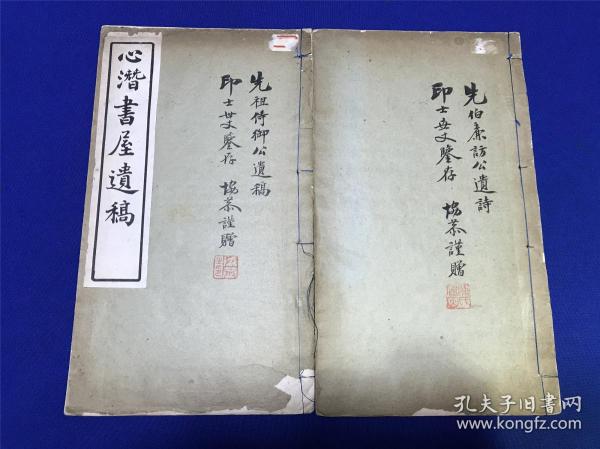 先伯廉訪公遺詩
印士世丈鑒存
協恭謹贈
先祖侍御公遺稿
印士世丈鑒存
協恭謹贈
心潛書屋遺稿
孔夫子旧书网
www.kongfz.com